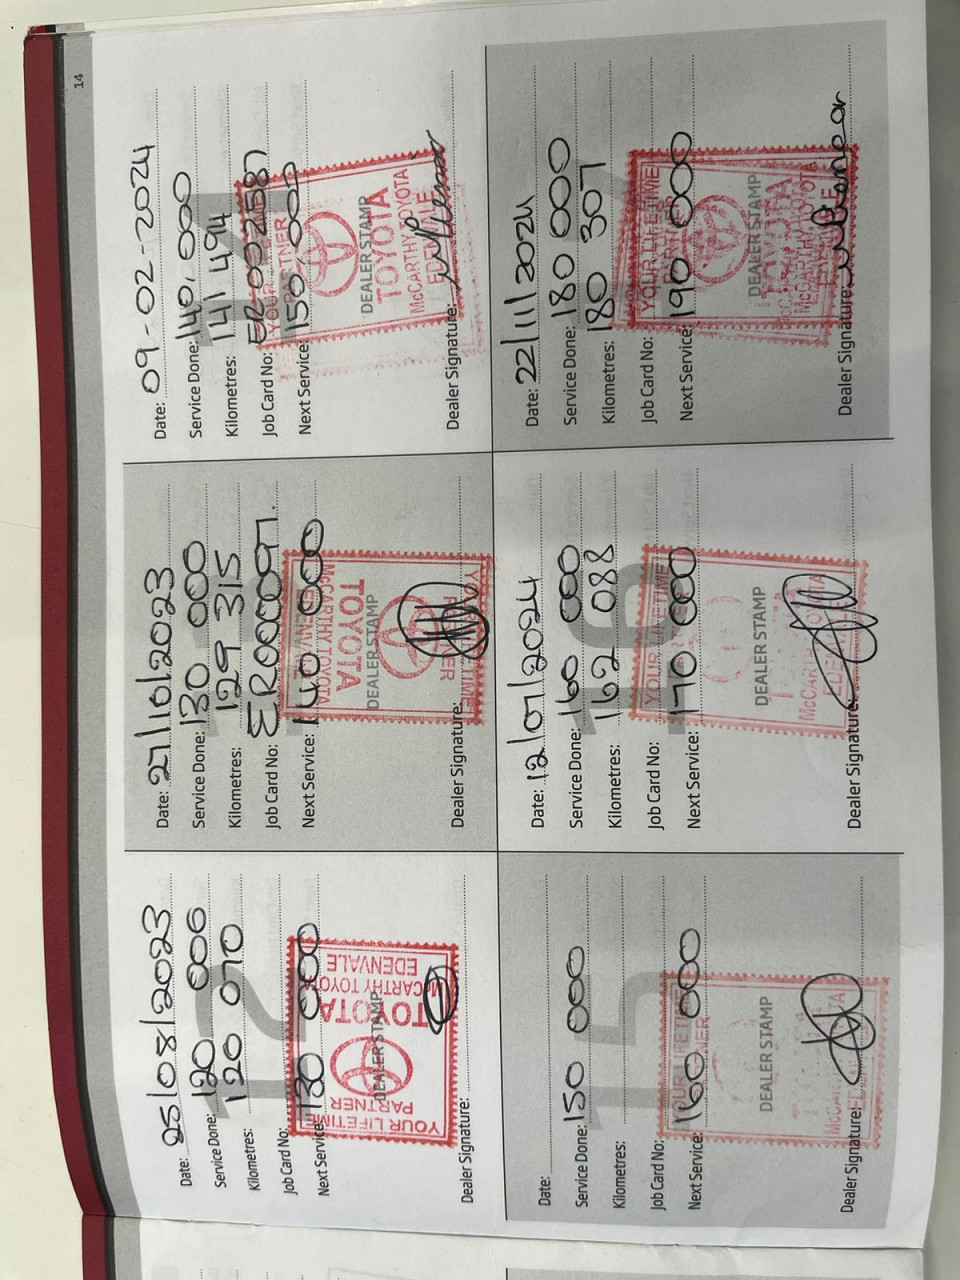 14
12
Date: 25/08/2023
Service Done: 120 000
Kilometres: 120 070
Job Card No:
Next Service: 130 000
DEALER STAMP
YOUR LIFETIME
PARTNER
TOYOTA
McCARTHY TOYOTA
EDENVALE
Dealer Signature:
Date: 27/10/2023
Service Done: 130 000
Kilometres: 129 315
Job Card No: ER000097.
Next Service: 140 000
DEALER STAMP
YOUR LIFETIME
PARTNER
TOYOTA
McCARTHY TOYOTA
EDENVALE
Dealer Signature:
Date: 09-02-2024
Service Done: 140,000
Kilometres: 141 494
Job Card No: ER002587
Next Service: 150,000
YOUR LIFETIME
PARTNER
DEALER STAMP
TOYOTA
McCARTHY TOYOTA
EDENVALE
Dealer Signature:
15
Date:
Service Done: 150 000
Kilometres:
Job Card No:
Next Service: 160 000
YOUR LIFETIME
PARTNER
DEALER STAMP
Dealer Signature:
16
Date: 12/07/2024
Service Done: 160 000
Kilometres: 162 088
Job Card No:
Next Service: 170 000
YOUR LIFETIME
DEALER STAMP
McCARTHY TOYOTA
EDENVALE
Dealer Signature:
Date: 22/11/2024
Service Done: 180 000
Kilometres: 180 307
Job Card No:
Next Service: 190 000
YOUR LIFETIME
PARTNER
DEALER STAMP
TOYOTA
McCARTHY TOYOTA
Dealer Signature: